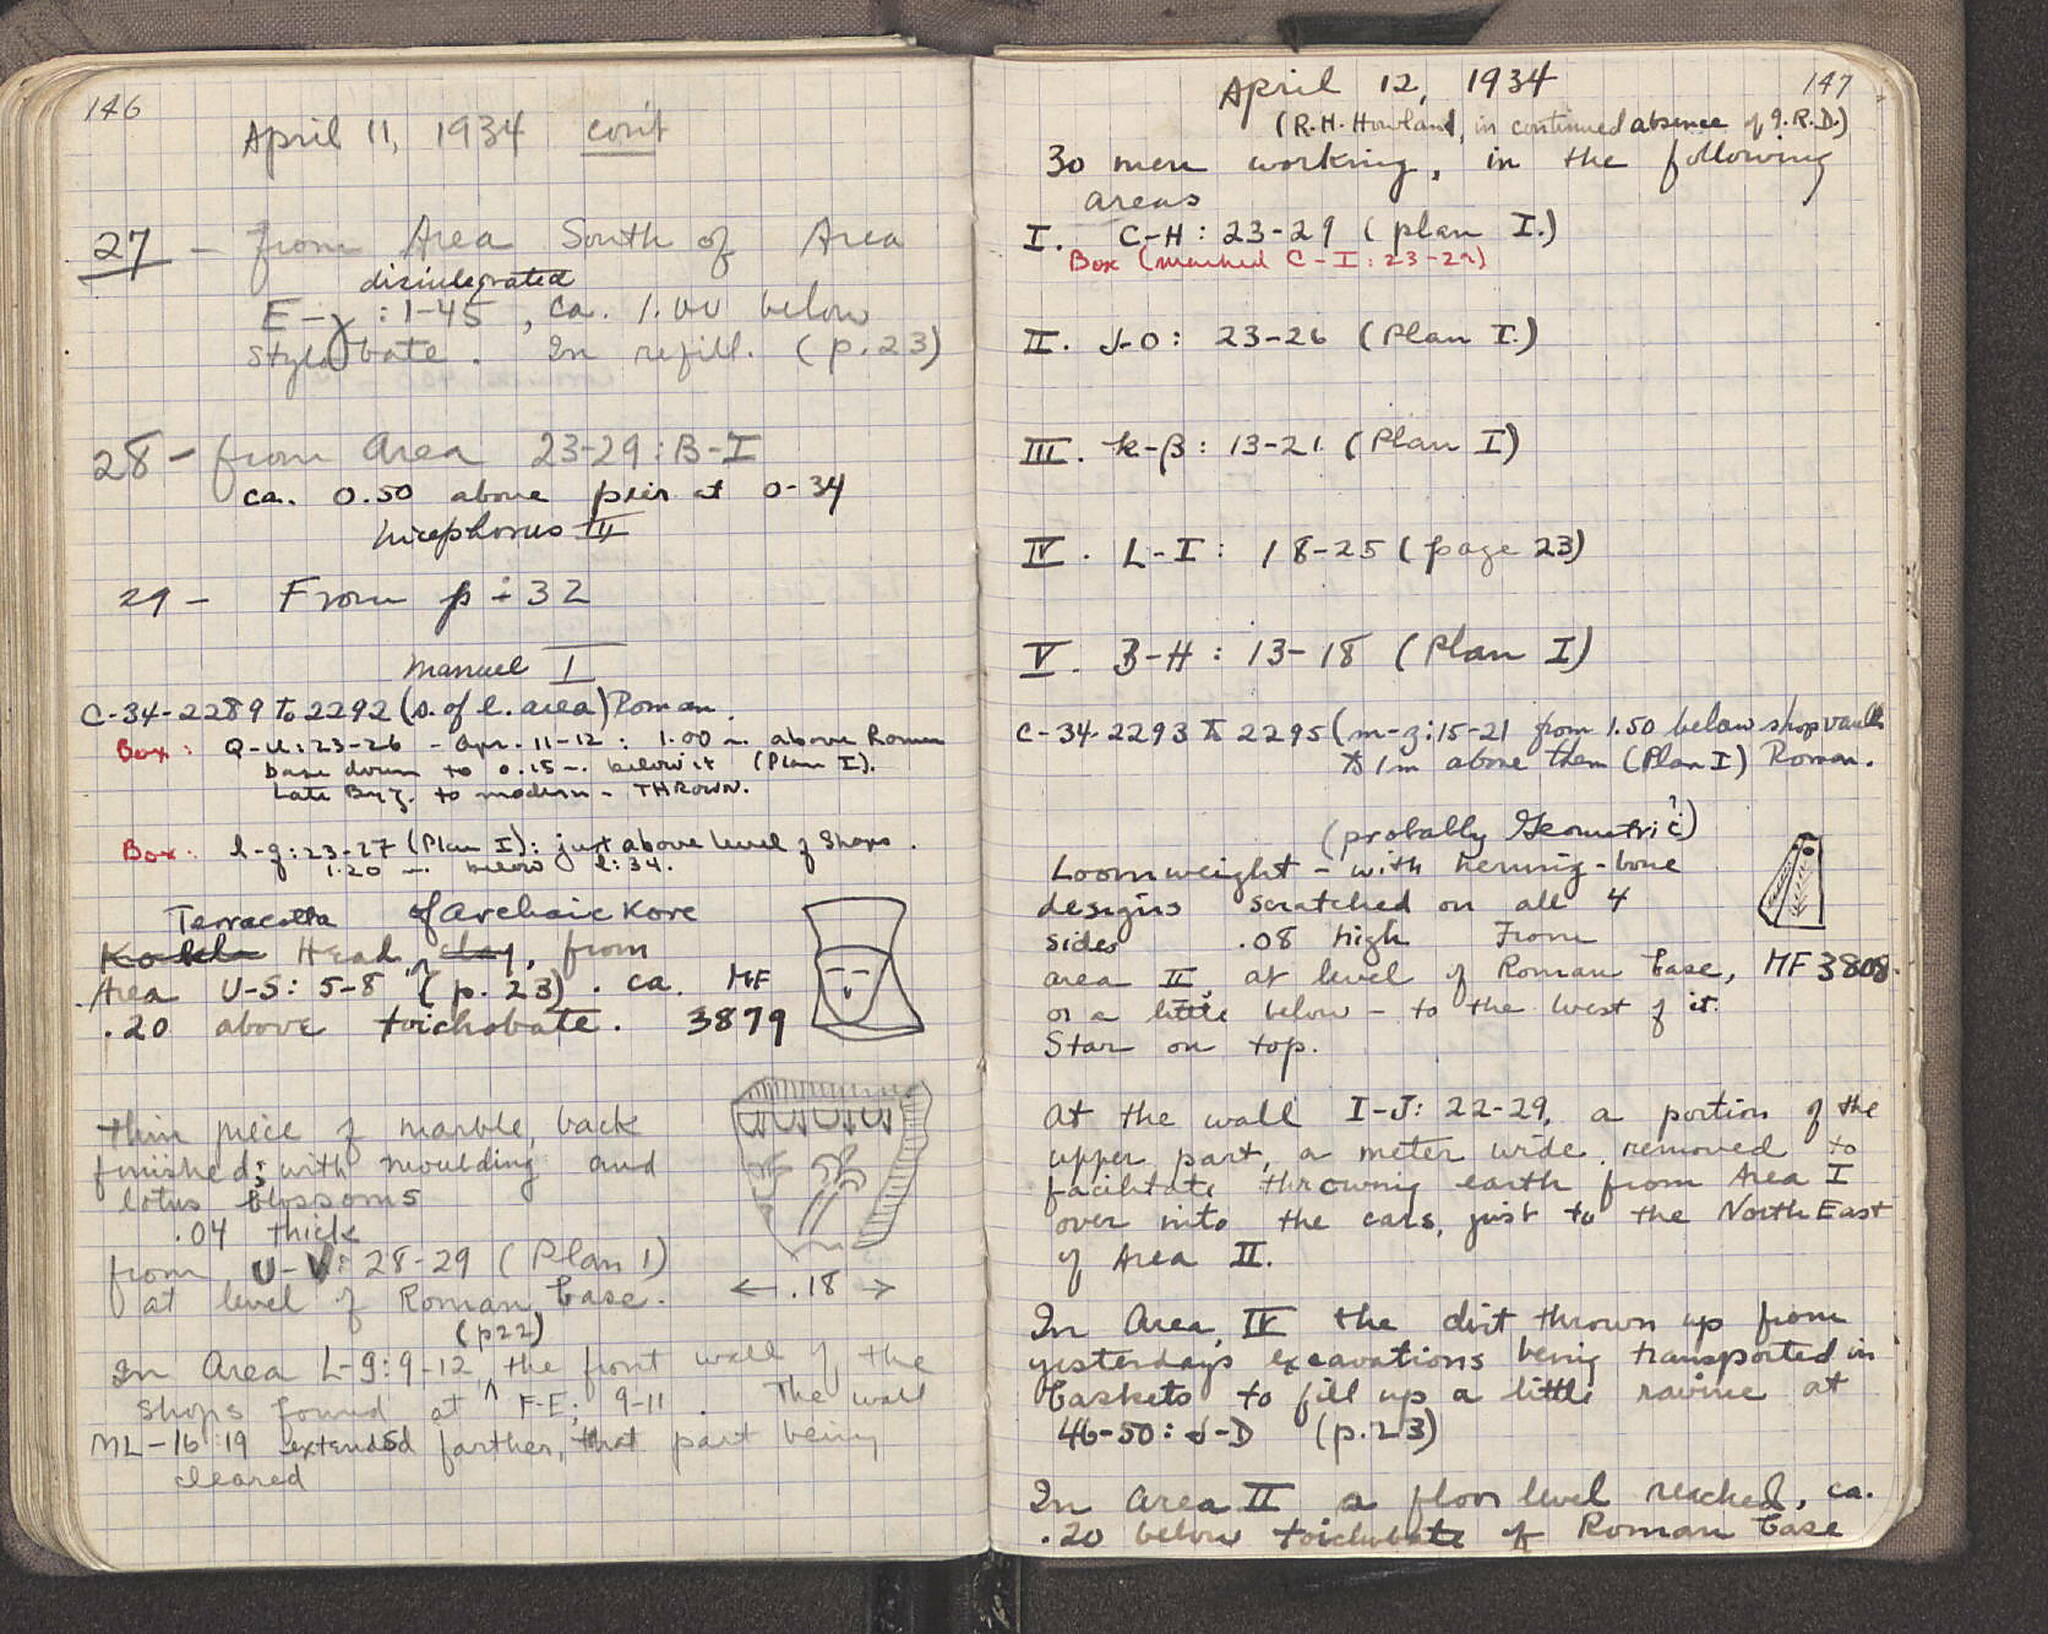 146
April 11, 1934 con't
27 - from Area South of Area
disintegrated
E-γ : 1-45, ca. 1.00 below
stylobate. In refill. (p. 23)
28 - from area 23-29 : B-I
ca. 0.50 above pier at O-34
Nicephorus III
29 - From p - 32
Manuel I
C-34-2289 to 2292 (s. of l. area) Roman.
Box: Q-U: 23-26 - Apr. 11-12 : 1.00 m. above Roman
base down to 0.15 m. below it (Plan I).
Late Byz. to modern - THROWN.
Box: l-g: 23-27 (Plan I): just above level of Shops.
1.20 m. below l: 34.
Terracotta of Archaic Kore
Head, clay, from
Area U-S: 5-8 (p. 23). ca. MF
.20 above toichobate. 3879
thin piece of marble, back
finished; with moulding and
lotus blossoms
.04 thick
from U-V: 28-29 (Plan 1)
at level of Roman base. ← .18 →
(p 22)
In Area L-g: 9-12 ^ the front wall of the
shops found at F-E; 9-11. The wall
ML-16:19 extended farther, that part being
cleared
147
April 12, 1934
(R.H. Howland, in continued absence of I.R.D.)
30 men working, in the following
areas
I. C-H: 23-29 (plan I.)
Box (marked C-I: 23-29)
II. J-O: 23-26 (Plan I.)
III. K-β: 13-21 (Plan I)
IV. L-I: 18-25 (page 23)
V. 3-H: 13-18 (Plan I)
C-34-2293 to 2295 (m-g: 15-21 from 1.50 below shop vaults
to 1m above them (Plan I) Roman.
(probably Geometric?)
Loomweight - with herring-bone
designs scratched on all 4
sides .08 high From
area II, at level of Roman base, MF 3808.
or a little below - to the west of it.
Star on top.
At the wall I-J: 22-29, a portion of the
upper part, a meter wide, removed to
facilitate throwing earth from Area I
over into the cars, just to the North East
of Area II.
In Area IV the dirt thrown up from
yesterday's excavations being transported in
baskets to fill up a little ravine at
46-50: J-D (p. 23)
In area II a floor level reached, ca.
.20 below toichobate of Roman base